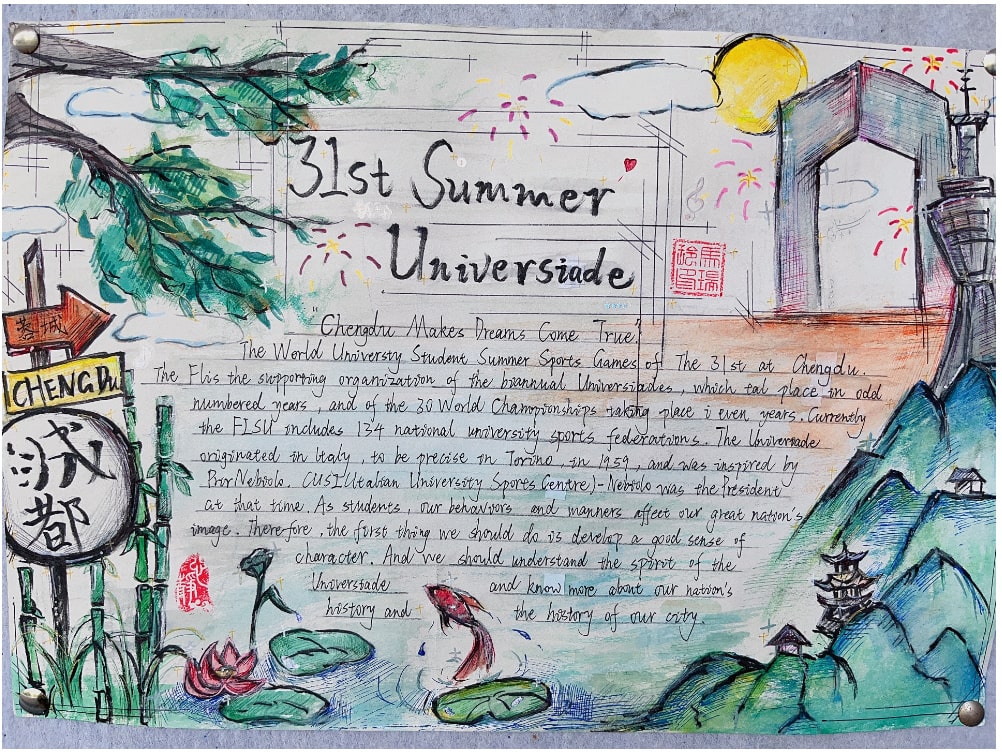 31st Summer
Universiade
"Chengdu Makes Dreams Come True"
The World Universty Student Summer Sports Games of The 31st at Chengdu.
The FIis the supporting organization of the biannual Universiades, which tal place in odd
numbered years, and of the 30 World Championships taking place i even years. Currently
the FISU includes 134 national university sports federations. The Universiade
originated in Italy, to be precise in Torino, in 1959, and was inspired by
Nebiolo. CUSI(Italian University Sports Centre)-Nebiolo was the President
at that time. As students, our behaviors and manners affect our great nation's
image. Therefore, the first thing we should do is develop a good sense of
character. And we should understand the spirit of the
Universiade and know more about our nation's
history and the history of our city.
蓉城
CHENGDU
成都